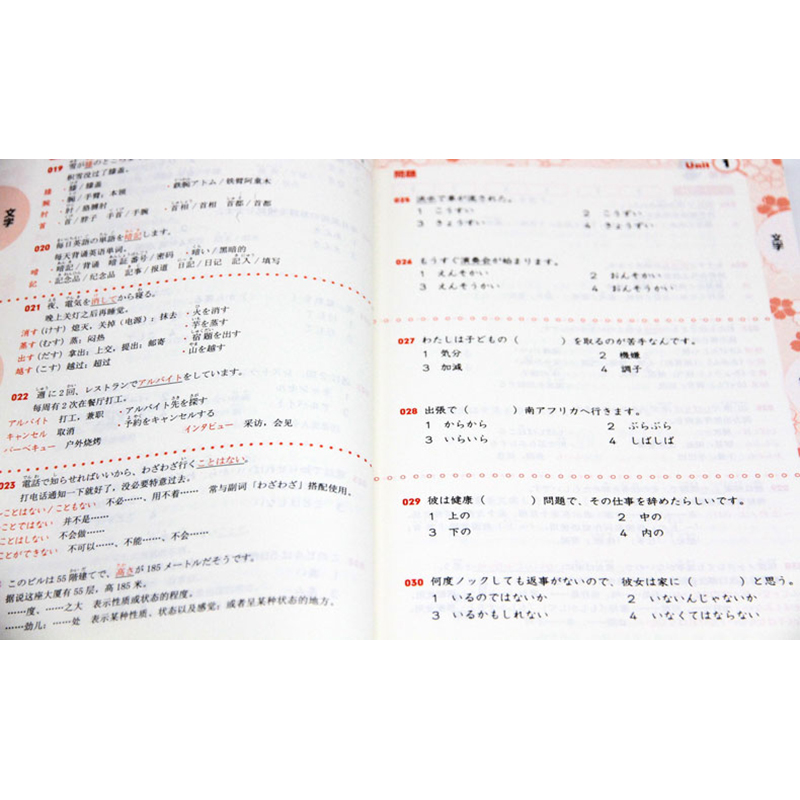 019 雪が膝のところ
积雪没过了膝盖。
膝 ・膝/膝盖
腕 ・腕/手臂;本领 ・鉄腕アトム/铁臂阿童木
肘 ・肘/胳膊肘
首 ・首/脖子 手首/手腕 ・首相/首相 首都/首都
020 毎日英語の単語を暗記します。
每天背诵英语单词。
暗 ・暗記/背诵 暗証番号/密码 ・暗い/黑暗的
記 ・記念品/纪念品 記事/报道 日記/日记 記入/填写
021 夜、電気を消してから寝る。
晚上关灯之后再睡觉。
消す(けす)熄灭,关掉(电源);抹去 ・火を消す
蒸す(むす)蒸;闷热 ・芋を蒸す
出す(だす)拿出;上交,提出;邮寄 ・宿題を出す
越す(こす)越过;超过 ・山を越す
022 週に2回、レストランでアルバイトをしています。
每周有2次在餐厅打工。
アルバイト 打工,兼职 ・アルバイト先を探す
キャンセル 取消 ・予約をキャンセルする
バーベキュー 户外烧烤 インタビュー 采访,会见
023 電話で知らせればいいから、わざわざ行くことはない。
打电话通知一下就好了,没必要特意过去。
~ことはない/こともない 不必……,用不着…… 常与副词「わざわざ」搭配使用。
~ことではない 并不是……
ことはしない 不会做……
ことができない 不可以……,不能……,不会……
このビルは55階建てで、高さが185メートルだそうです。
据说这座大厦有55层,高185米。
……度、……之大 表示性质或状态的程度。
……劲儿;……处 表示某种性质、状态以及感觉;或者呈某种状态的地方。
文字
問題
Unit 1
025 洪水で車が流された。
1 こうすい 2 こうずい
3 きょうずい 4 きょうすい
026 もうすぐ演奏会が始まります。
1 えんそかい 2 おんそかい
3 えんそうかい 4 おんそうかい
027 わたしは子どもの( )を取るのが苦手なんです。
1 気分 2 機嫌
3 加減 4 調子
028 出張で( )南アフリカへ行きます。
1 からから 2 ぶらぶら
3 いらいら 4 しばしば
029 彼は健康( )問題で、その仕事を辞めたらしいです。
1 上の 2 中の
3 下の 4 内の
030 何度ノックしても返事がないので、彼女は家に( )と思う。
1 いるのではないか 2 いないんじゃないか
3 いるかもしれない 4 いなくてはならない
文字